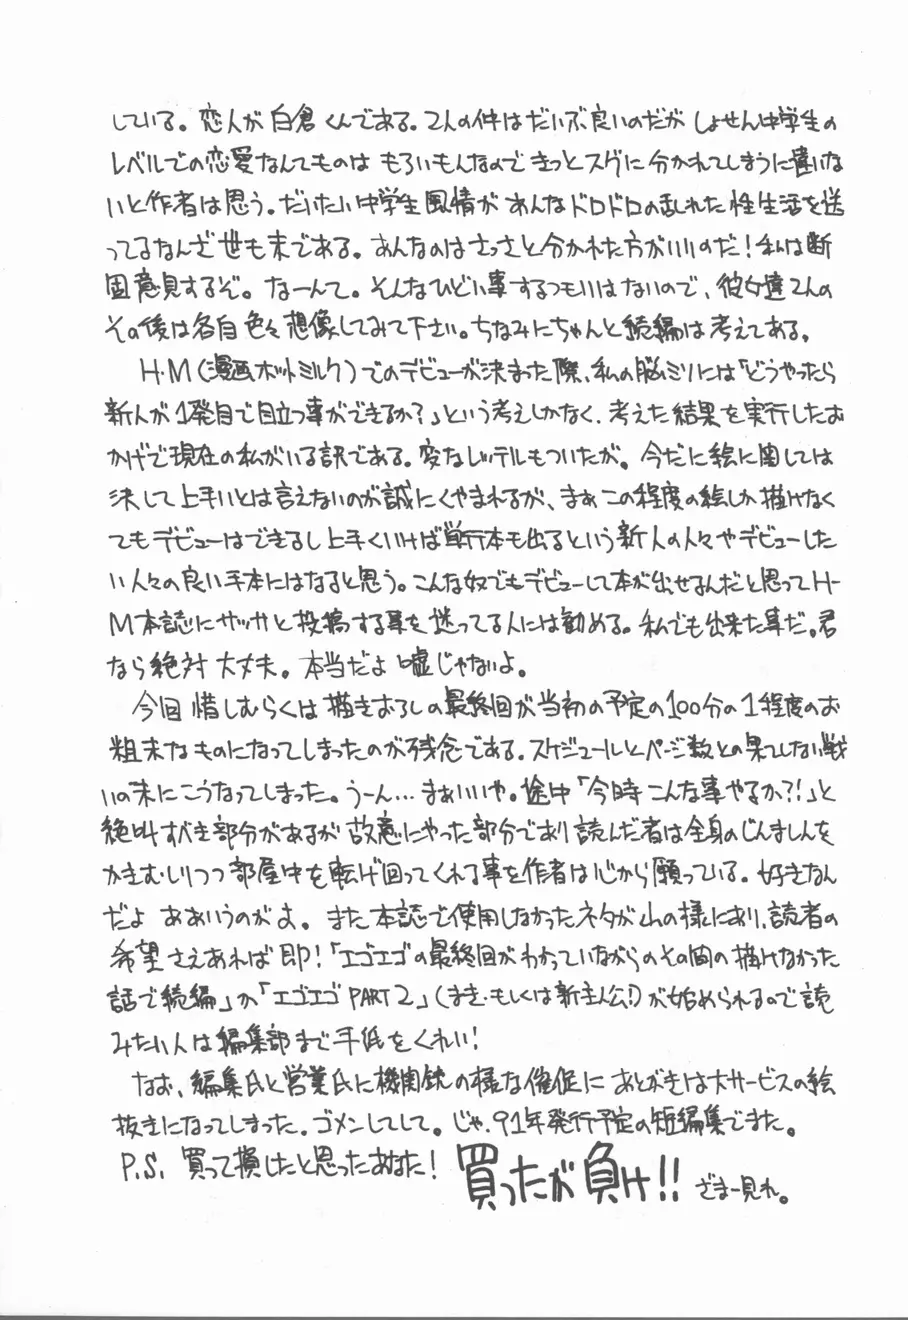 している。恋人が白倉くんである。2人の件はだいぶ良いのだが しょせん中学生の
レベルでの恋愛なんてものは もろいもんなので きっとスグに 分かれてしまうに違いな
いと作者は思う。だいたい中学生風情が あんなドロドロの乱れた 性生活を送
ってるなんざ世も末である。あんなのはさっさと分かれた方がいいのだ!私は断
固意見するぞ。なーんて。そんなひどい事するつもりはないので、彼女達2人の
その後は各自色々想像してみて下さい。ちなみにちゃんと続編は考えてある。
H・M(漫画ホットミルク)でのデビューが決まった際、私の脳ミソには「どうやったら
新人が1発目で目立つ事ができるか?」という考えしかなく、考えた結果を実行したお
かげで現在の私がいる訳である。変なレッテルもついたが。今だに絵に関しては
決して上手いとは言えないのが誠にくやまれるが、まぁこの程度の絵しか描けなく
てもデビューはできるし上手くいけば単行本も出るという新人の人々やデビューした
い人々の良い手本にはなると思う。こんな奴でもデビューして本が出せるんだと思ってH・
M本誌にサッサと投稿する事を迷ってる人には勧める。私でも出来た事だ。君
なら絶対 大丈夫。本当だよ 嘘じゃないよ。
今回 惜しむらくは描きおろしの最終回が当初の予定の100分の1程度のお
粗末なものになってしまったのが残念である。スケジュールとページ数との果てしない戦
いの末にこうなってしまった。うーん…まぁいいや。途中「今時こんな事やるか?!」と
絶叫すべき部分があるが故意にやった部分であり読んだ者は全身のじんましんを
かきむしりつつ部屋中を転げ回ってくれる事を作者は心から願っている。好きなん
だよ ああいうのがよ。また本誌で使用しなかったネタが山の様にあり、読者の
希望さえあれば即!「エゴエゴの最終回がわかっていながらのその間の描けなかった
話で続編」か「エゴエゴPART2」(まき・もしくは新主人公!)が始められるので読
みたい人は編集部まで手紙をくれい!
なお、編集氏と営業氏に機関銃の様な催促にあとがきは大サービスの絵
抜きになってしまった。ゴメンしてして。じゃ、91年発行予定の短編集でまた。
P.S. 買って損したと思ったあなた! 買ったが負け!! ざまー見れ。